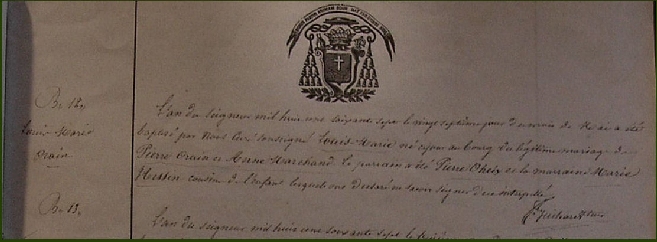 Bs 12
Louis-Marie
Orain
L'an du Seigneur mil huit cent soixante sept le vingt septième jour du mois de Mai a été
baptisé par Nous Curé soussigné Louis-Marie né ce jour au bourg du légitime mariage de
Pierre Orain et Anne Marchand. Le parrain a été Pierre et la marraine Marie
cousin de l'enfant lesquels ont déclaré ne savoir signer de ce interpellés
Bs 13
L'an du seigneur mil huit cent soixante sept le